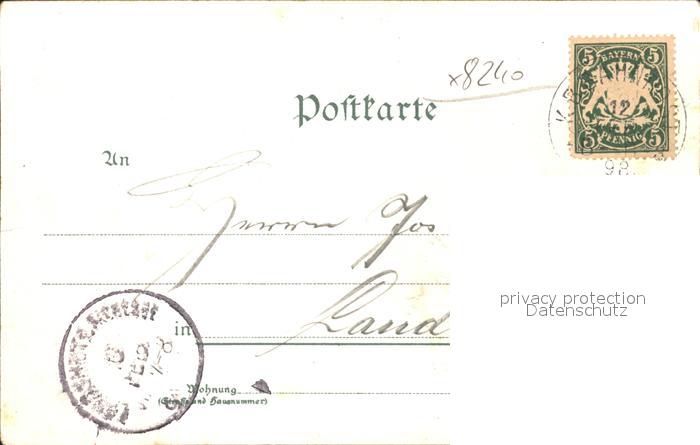 x8240
5 BAYERN 5
12
5 PFENNIG 5
98
Postkarte
An
Herrn Jos
privacy protection
Datenschutz
in Land
Wohnung
(Straße und Hausnummer)